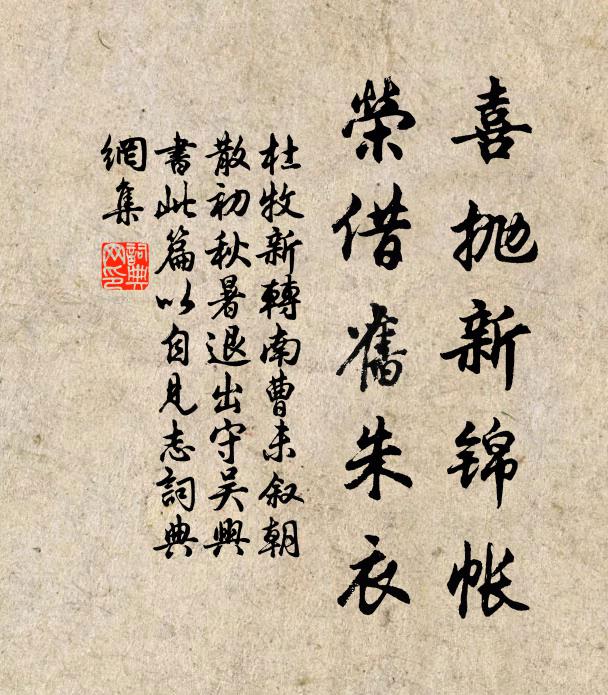 喜抛新錦帳
榮借舊朱衣
杜牧新轉南曹未叙朝
散初秋暑退出守吴興
書此篇以自見志詞典
網集
詞典
网印